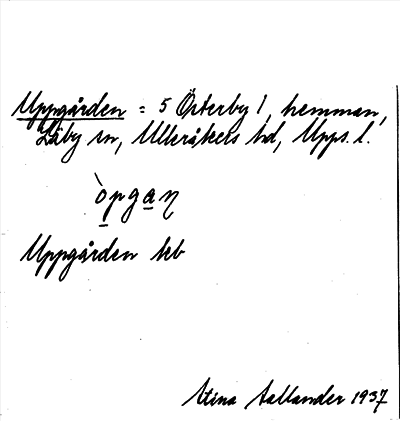 Uppgården = 5 Österby 1, hemman,
Läby sn, Ulleråkers hd, Upps. l.
òpgaɳ
Uppgården kb
Stina Sallander 1937